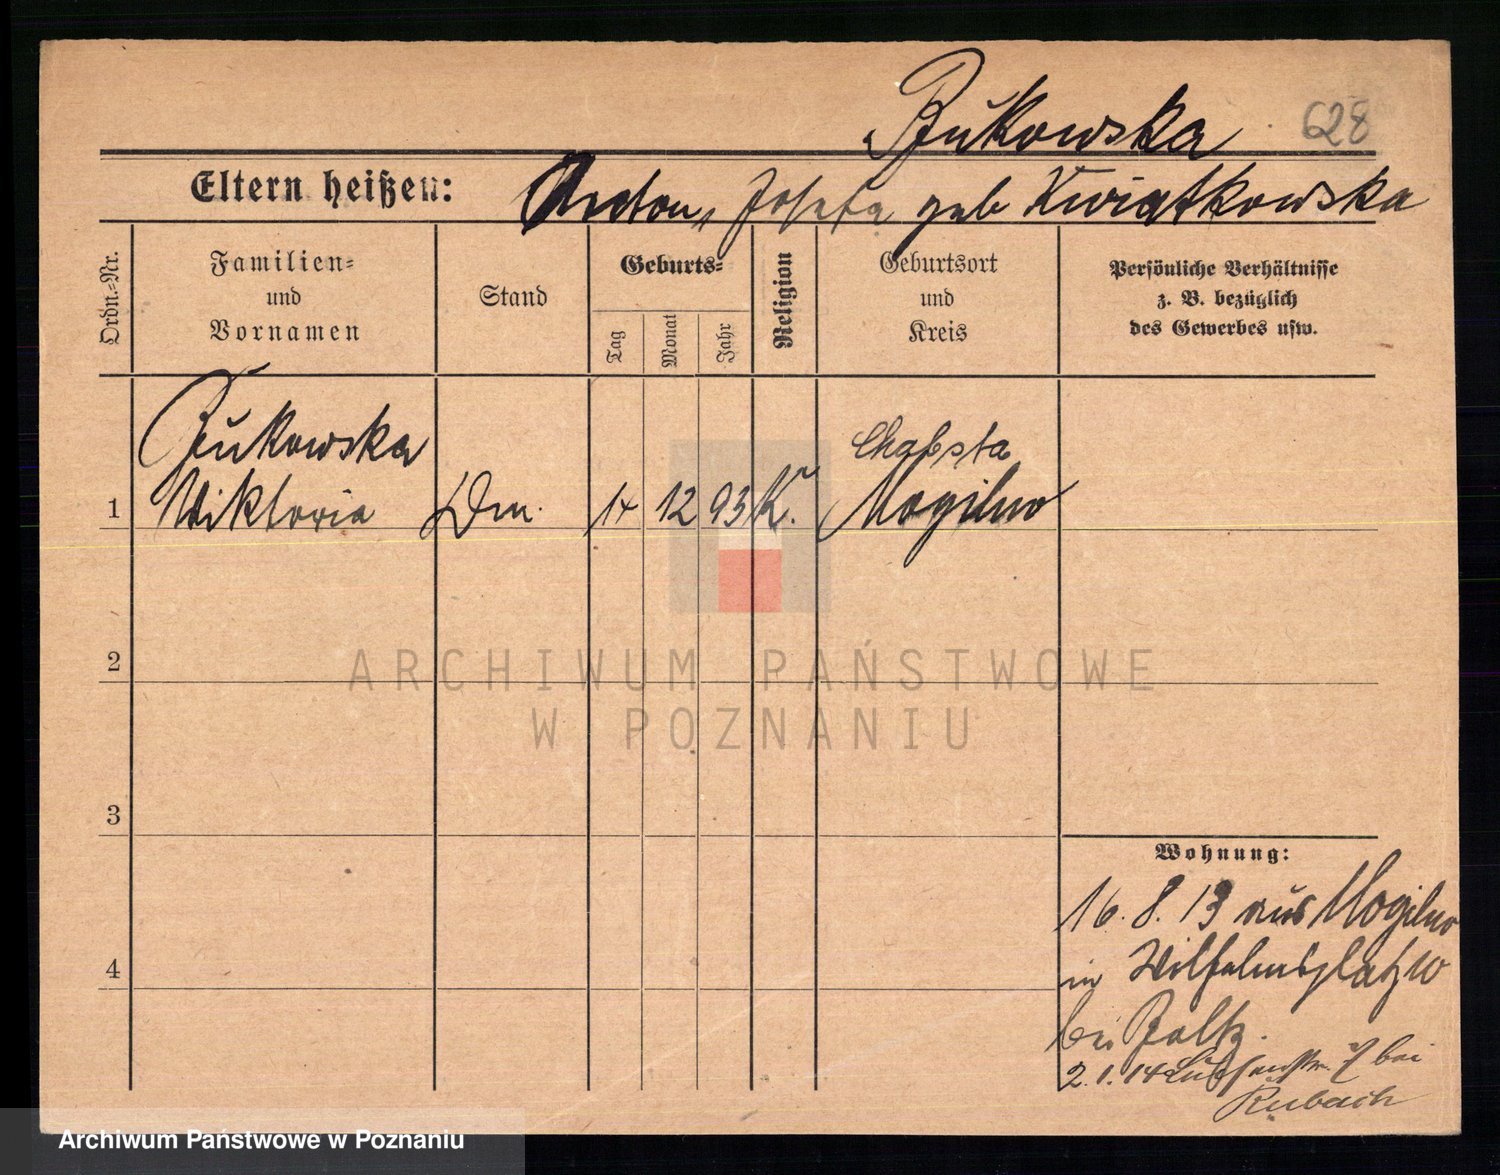 Bukowska 628
Eltern heißen: Anton, Josefa geb Kwiatkowska
Ordn.-Nr.
Familien-
und
Vornamen
Stand
Geburts-
Tag
Monat
Jahr
Religion
Geburtsort
und
Kreis
Persönliche Verhältnisse
z. B. bezüglich
des Gewerbes usw.
Bukowska
Chabsta
1 Wiktoria Dm. 14 12 93 K. Mogilno
2
3
4
Wohnung:
16. 8. 13 aus Mogilno
in Wilhelmsplatz 10
bei
2. 1. 14 bei
Rubach
ARCHIWUM PAŃSTWOWE
W POZNANIU
Archiwum Państwowe w Poznaniu